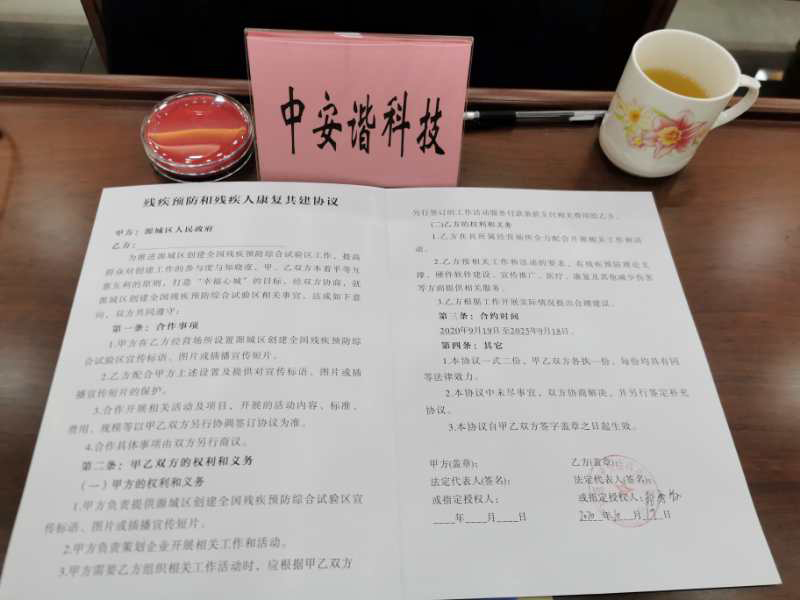 中安谐科技
残疾预防和残疾人康复共建协议
甲方：源城区人民政府
乙方：
为推进源城区创建全国残疾预防综合试验区工作，提高
群众对创建工作的参与度与知晓度，甲、乙双方本着平等互
惠互利的原则，打造“幸福心城”的目标，经双方协商，就
源城区创建全国残疾预防综合试验区相关事宜，达成如下意
向，双方共同遵守：
第一条：合作事项
1.甲方在乙方经营场所设置源城区创建全国残疾预防综
合试验区宣传标语、图片或插播宣传短片。
2.乙方配合甲方上述设置及提供对宣传标语、图片或插
播宣传短片的保护。
3.合作开展相关活动及项目，开展的活动内容、标准、
费用、规模等以甲乙双方另行协调签订协议为准。
4.合作具体事项由双方另行商议。
第二条：甲乙双方的权利和义务
（一）甲方的权利和义务
1.甲方负责提供源城区创建全国残疾预防综合试验区宣
传标语、图片或插播宣传短片。
2.甲方负责策划企业开展相关工作和活动。
3.甲方需要乙方组织相关工作活动时，应根据甲乙双方
另行签订的工作活动服务付款条款支付相关费用给乙方。
(二)乙方的权利和义务
1.乙方在其所属经营场所全力配合开展相关工作和活
动。
2.乙方按相关工作和活动的要求，有残疾预防理论支
撑、硬件软件建设、宣传推广、医疗、康复及其他减少伤害
等方面提供相关服务。
3.乙方根据工作开展实际情况提出合理建议。
第三条：合约时间
2020年9月19日至2025年9月18日。
第四条：其它
1.本协议一式二份，甲乙双方各执一份，每份均具有同
等法律效力。
2.本协议中未尽事宜，双方协商解决，并另行签定补充
协议。
3.本协议自甲乙双方签字盖章之日起生效。
甲方(盖章)：
乙方(盖章)：
法定代表人(签名)：
法定代表人(签名)：
或指定授权人：
或指定授权人：
____年____月____日
2020年 月 日